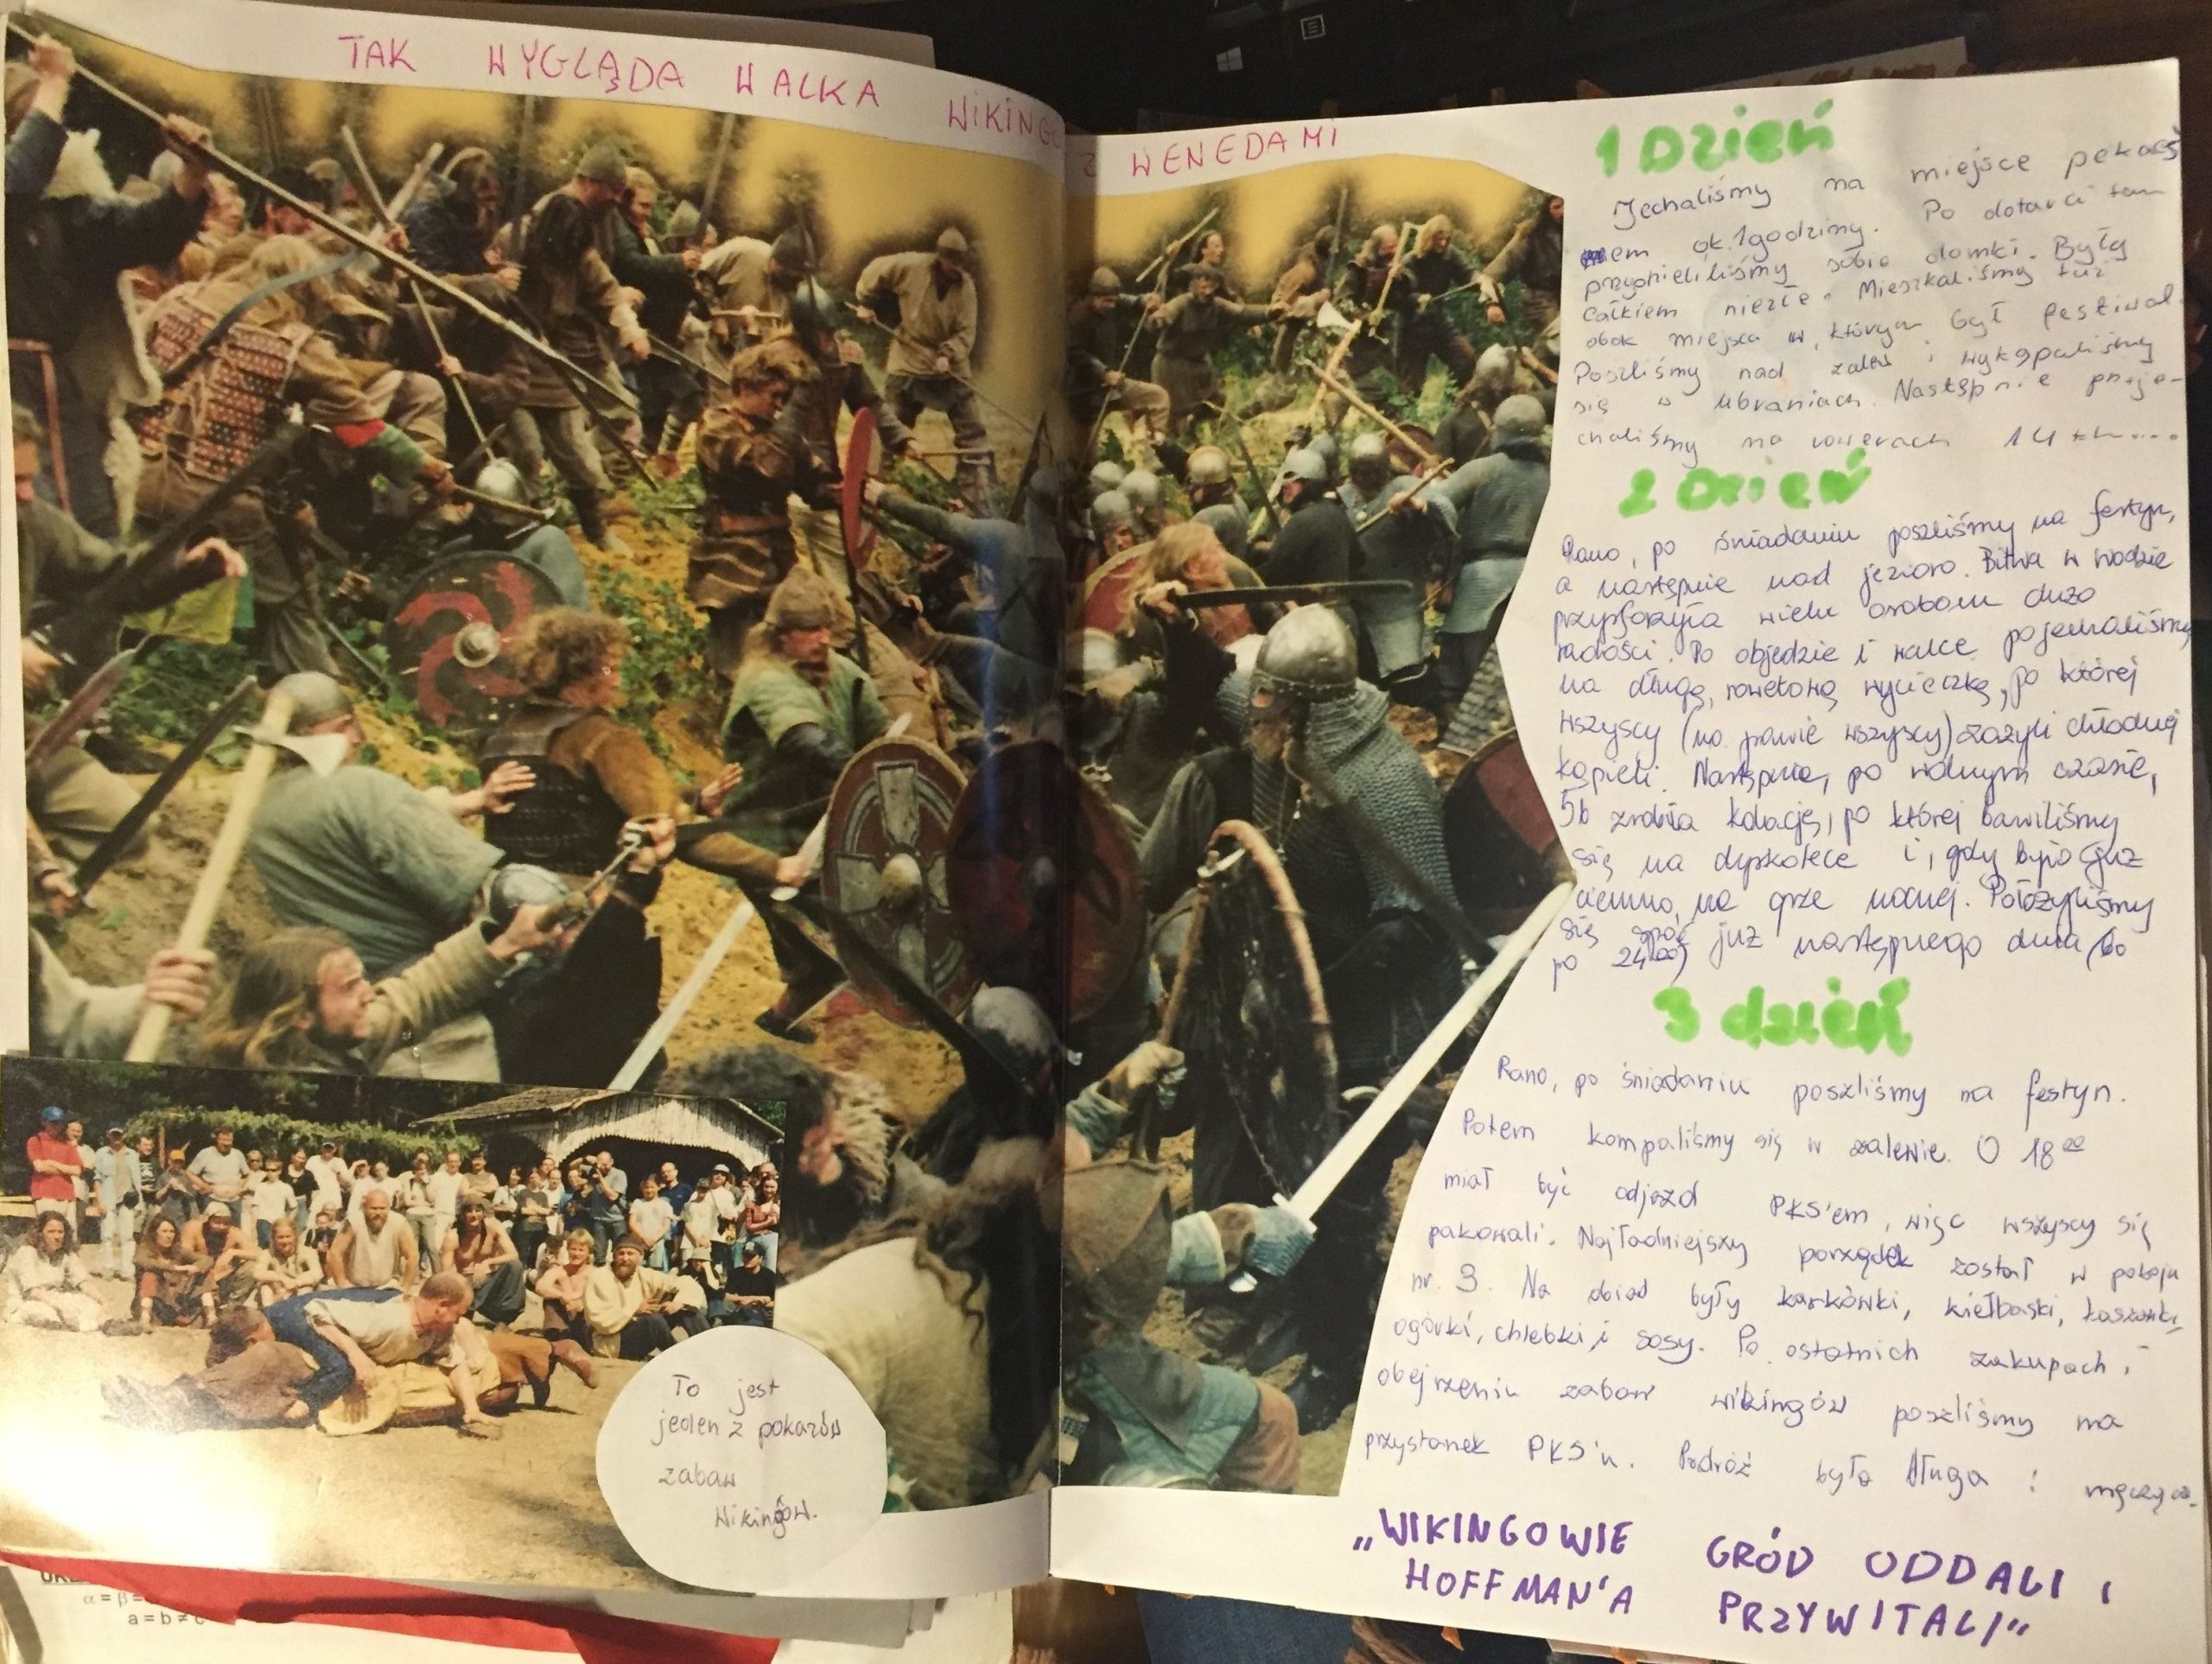 TAK WYGLĄDA WALKA WIKINGÓ
Z WENEDAMI
1 Dzień
Jechaliśmy na miejsce pekaeś
em ok. 1 godziny. Po dotarci tam
przydzieliliśmy sobie domki. Były
całkiem niezłe. Mieszkaliśmy tuż
obok miejsca w, którym był festiwal.
Poszliśmy nad zalew i wykąpaliśmy
się w ubraniach. Następnie przeje-
chaliśmy na rowerach 14 km....
2 Dzień
Rano, po śniadaniu poszliśmy na festyn,
a następnie nad jezioro. Bitwa w wodzie
przysporzyła wielu osobom dużo
radości. Po objedzie i walce pojechaliśmy
na długą, rowerową wycieczkę, po której
wszyscy (no prawie wszyscy) zażyli chłodnej
kąpieli. Następnie, po wolnym czasie,
5b zrobiła kolację, po której bawiliśmy
się na dyskotece i, gdy było już
ciemno, na grze nocnej. Położyliśmy
się spać już następnego dnia (bo
po 24:00)
3 dzień
Rano, po śniadaniu poszliśmy na festyn.
Potem kompaliśmy się w zalewie. O 18 00
miał być odjazd PKS'em, więc wszyscy się
pakowali. Najładniejszy porządek został w pokoju
nr. 3. Na obiad były karkówki, kiełbaski, kaszanki,
ogórki, chlebki i sosy. Po ostatnich zakupach i
obejrzeniu zabaw wikingów poszliśmy na
przystanek PKS'u. Podróż była długa i męcząca.
To jest
jeden z pokazów
zabaw
Wikingów.
„WIKINGOWIE GRÓD ODDALI I
HOFFMAN'A PRZYWITALI”
α = β =
a = b ≠ c